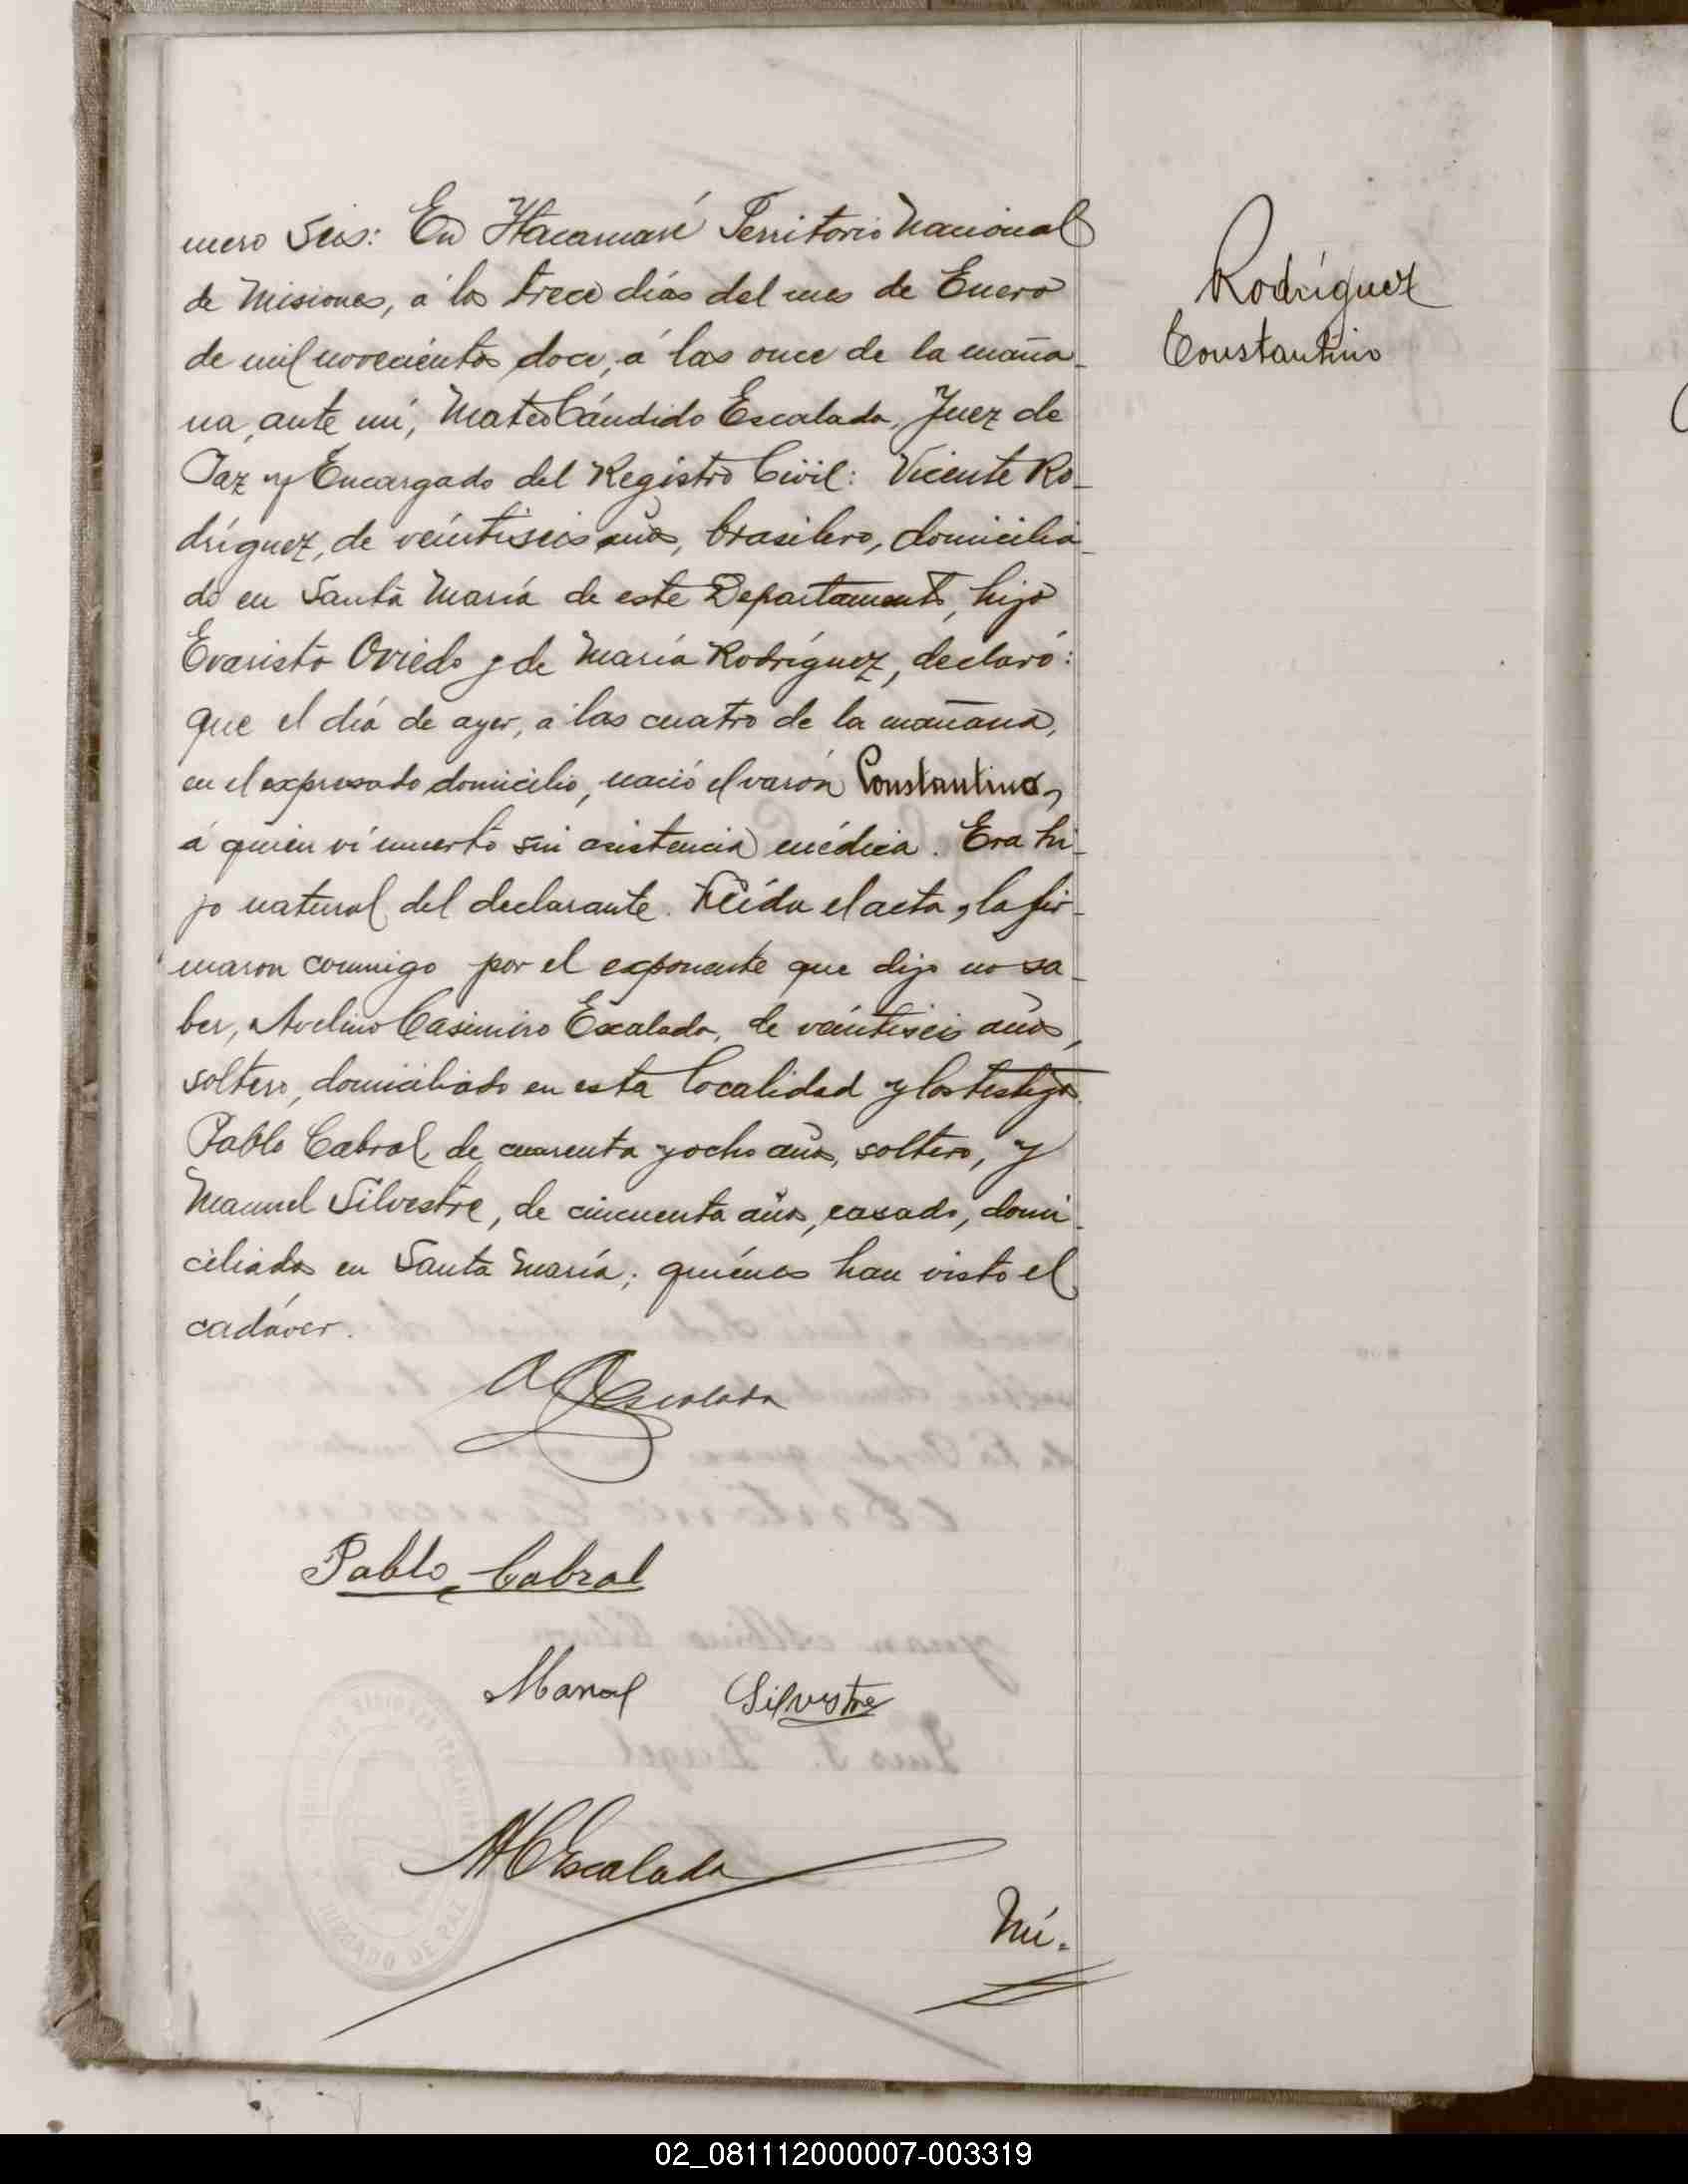 mero seis: En Itacaruaré Territorio Nacional
de Misiones, á los trece días del mes de Enero
de mil novecientos doce, á las once de la maña-
na, ante mí, Mateo Cándido Escalada, Juez de
Paz y Encargado del Registro Civil: Vicente Ro-
dríguez, de veintiseis años, brasilero, domicilia-
do en Santa María de este Departamento, hijo
Evaristo Oviedo y de María Rodríguez, declaró:
que el día de ayer, á las cuatro de la mañana,
en el expresado domicilio, nació el varón Constantino,
á quien ví muerto sin asistencia médica. Era hi-
jo natural del declarante. Leída el acta, la fir-
maron conmigo por el exponente que dijo no sa-
ber, Avelino Casimiro Escalada, de veintiseis años,
soltero, domiciliado en esta localidad y los testigos
Pablo Cabral, de cuarenta y ocho años, soltero, y
Manuel Silvestre, de cincuenta años, casado, domi-
ciliados en Santa María; quiénes han visto el
cadáver.
Escalada
Pablo Cabral
Manoel Silvestre
MCEscalada
Nú-
Rodríguez
Constantino
JUZGADO DE PAZ
02_081112000007-003319